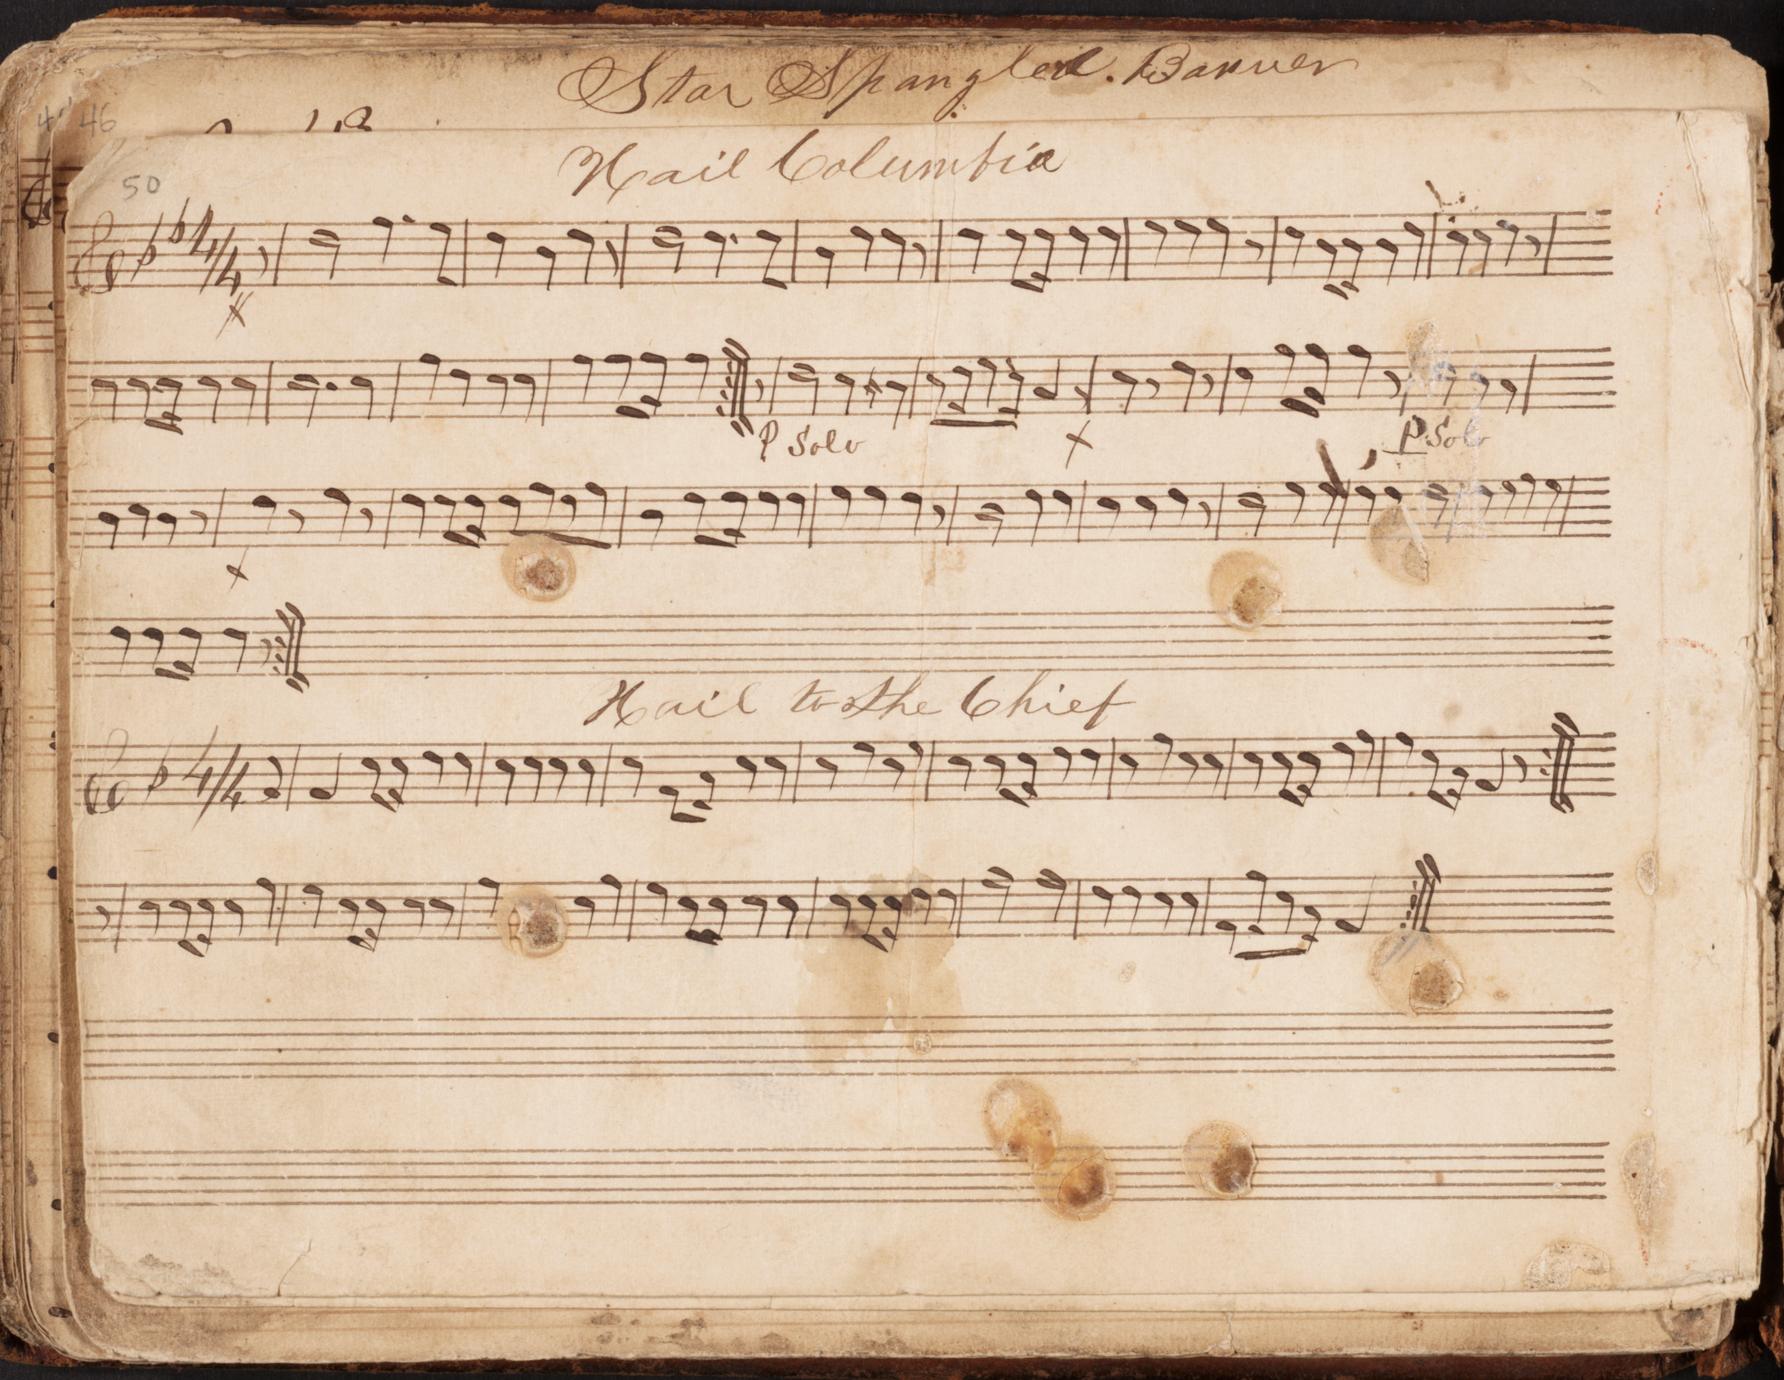 Star Spangled. Banner
4 46
Hail Columbia
50
4/4
P Solo
P Solo
Hail to the Chief
4/4